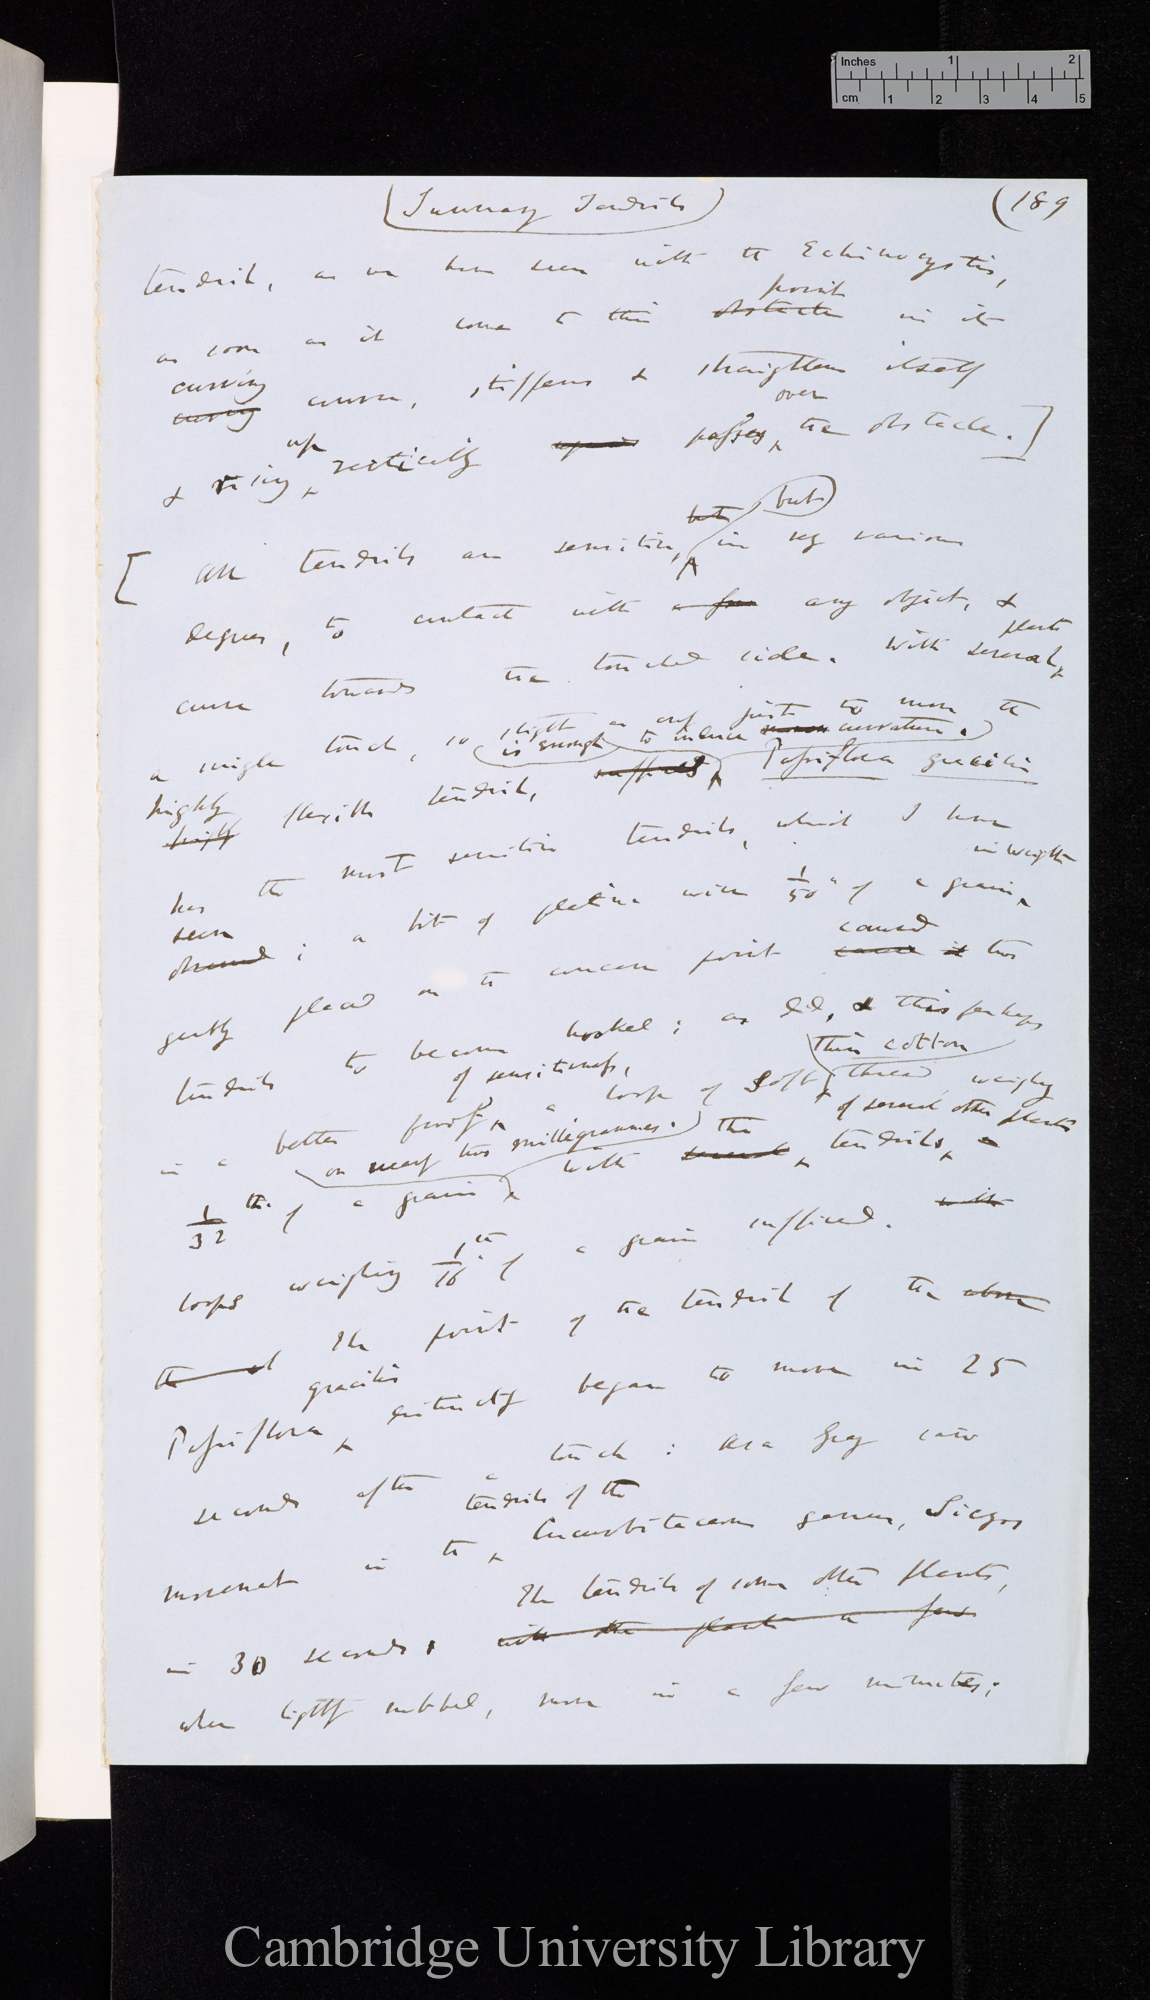 Inches 1 2
cm 1 2 3 4 5
(Summary Tendrils) (189
tendril, as we have seen with the Echinocystis,
point
as soon as it comes to this obstacle in its
curving
curving course, stiffens & straightens itself
up over
& rising vertically passes the obstacle.]
but but
[ All tendrils are sensitive, in very various
degrees, to contact with a few any object, &
plants
curve towards the touched side. With several
a single touch, so slight as only just to move the
is enough to induce curvature.
highly flexible tendril, suffices Passiflora gracilis
highly
has the most sensitive tendrils, which I have
seen in weight
observed; a bit of platina wire 1/50th of a grain
caused
gently placed on the concave point caused it two
tendrils to become hooked; as did, & this perhaps
of sensitiveness, thin cotton
in a better proof a loop of soft thread weighing
or nearly two milligrammes. the of several other plants
1/32 th of a grain With several tendrils
loops weighing 1/16th of a grain sufficed. with
The point of the tendril of the above
gracilis
Passiflora distinctly began to move in 25
seconds after a touch: Asa Gray saw
tendrils of the
movement in the Cucurbitaceous genus, Sicyos
The tendrils of some other plants,
in 30 seconds. with other plants in a few
when lightly rubbed, move in a few minutes;
Cambridge University Library